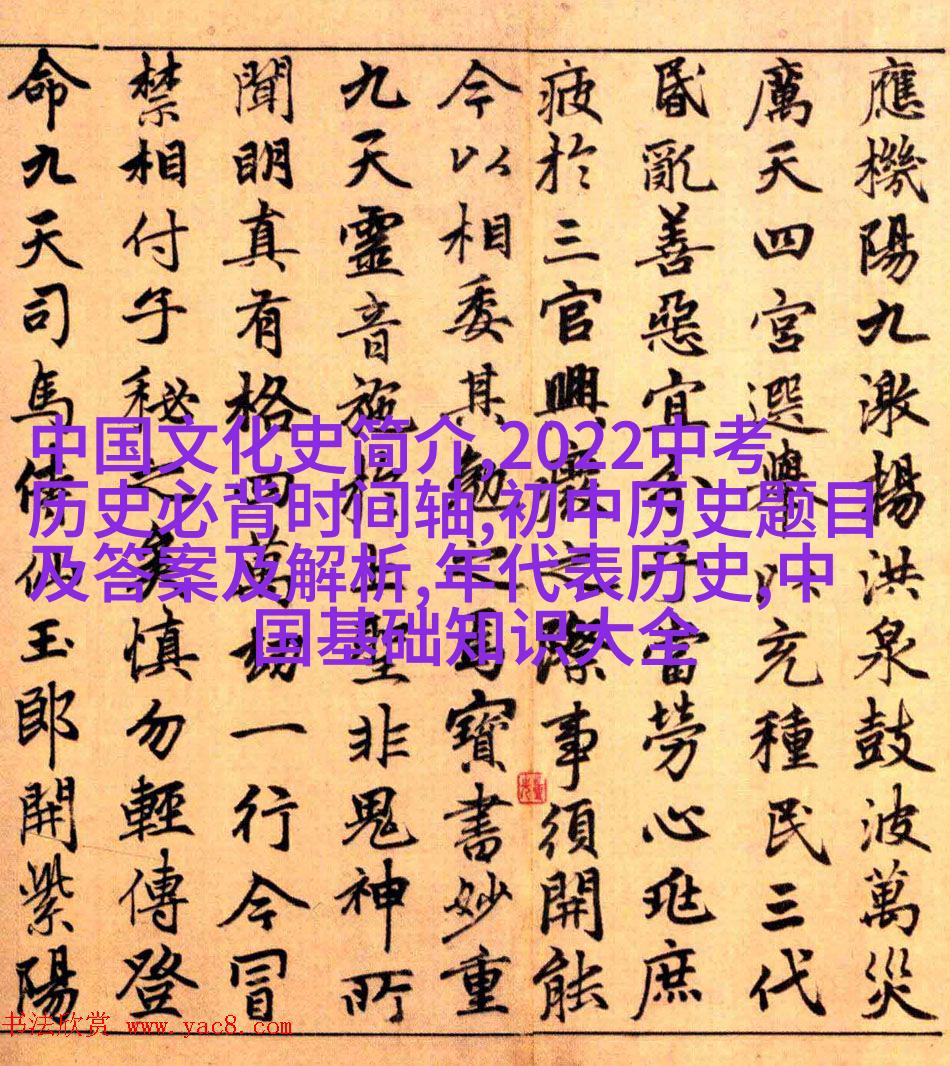 應機陽九激揚洪泉鼓波萬災
厲天四宮選舉以充種民三代
昏亂善惡宜分子當勞心兆庶
疲於三官興廢之際事須開能
今以相委其勉之焉寶書妙重
九天靈音施於上聖非鬼神所
聞明真有格四萬劫一行今冒
禁相付子秘之矣慎勿輕傳登
命九天司馬侍仙玉郎開紫陽
中国文化史简介,2022中考
历史必背时间轴,初中历史题目
及答案及解析,年代表历史,中
国基础知识大全
书法欣赏 www.yac8.com